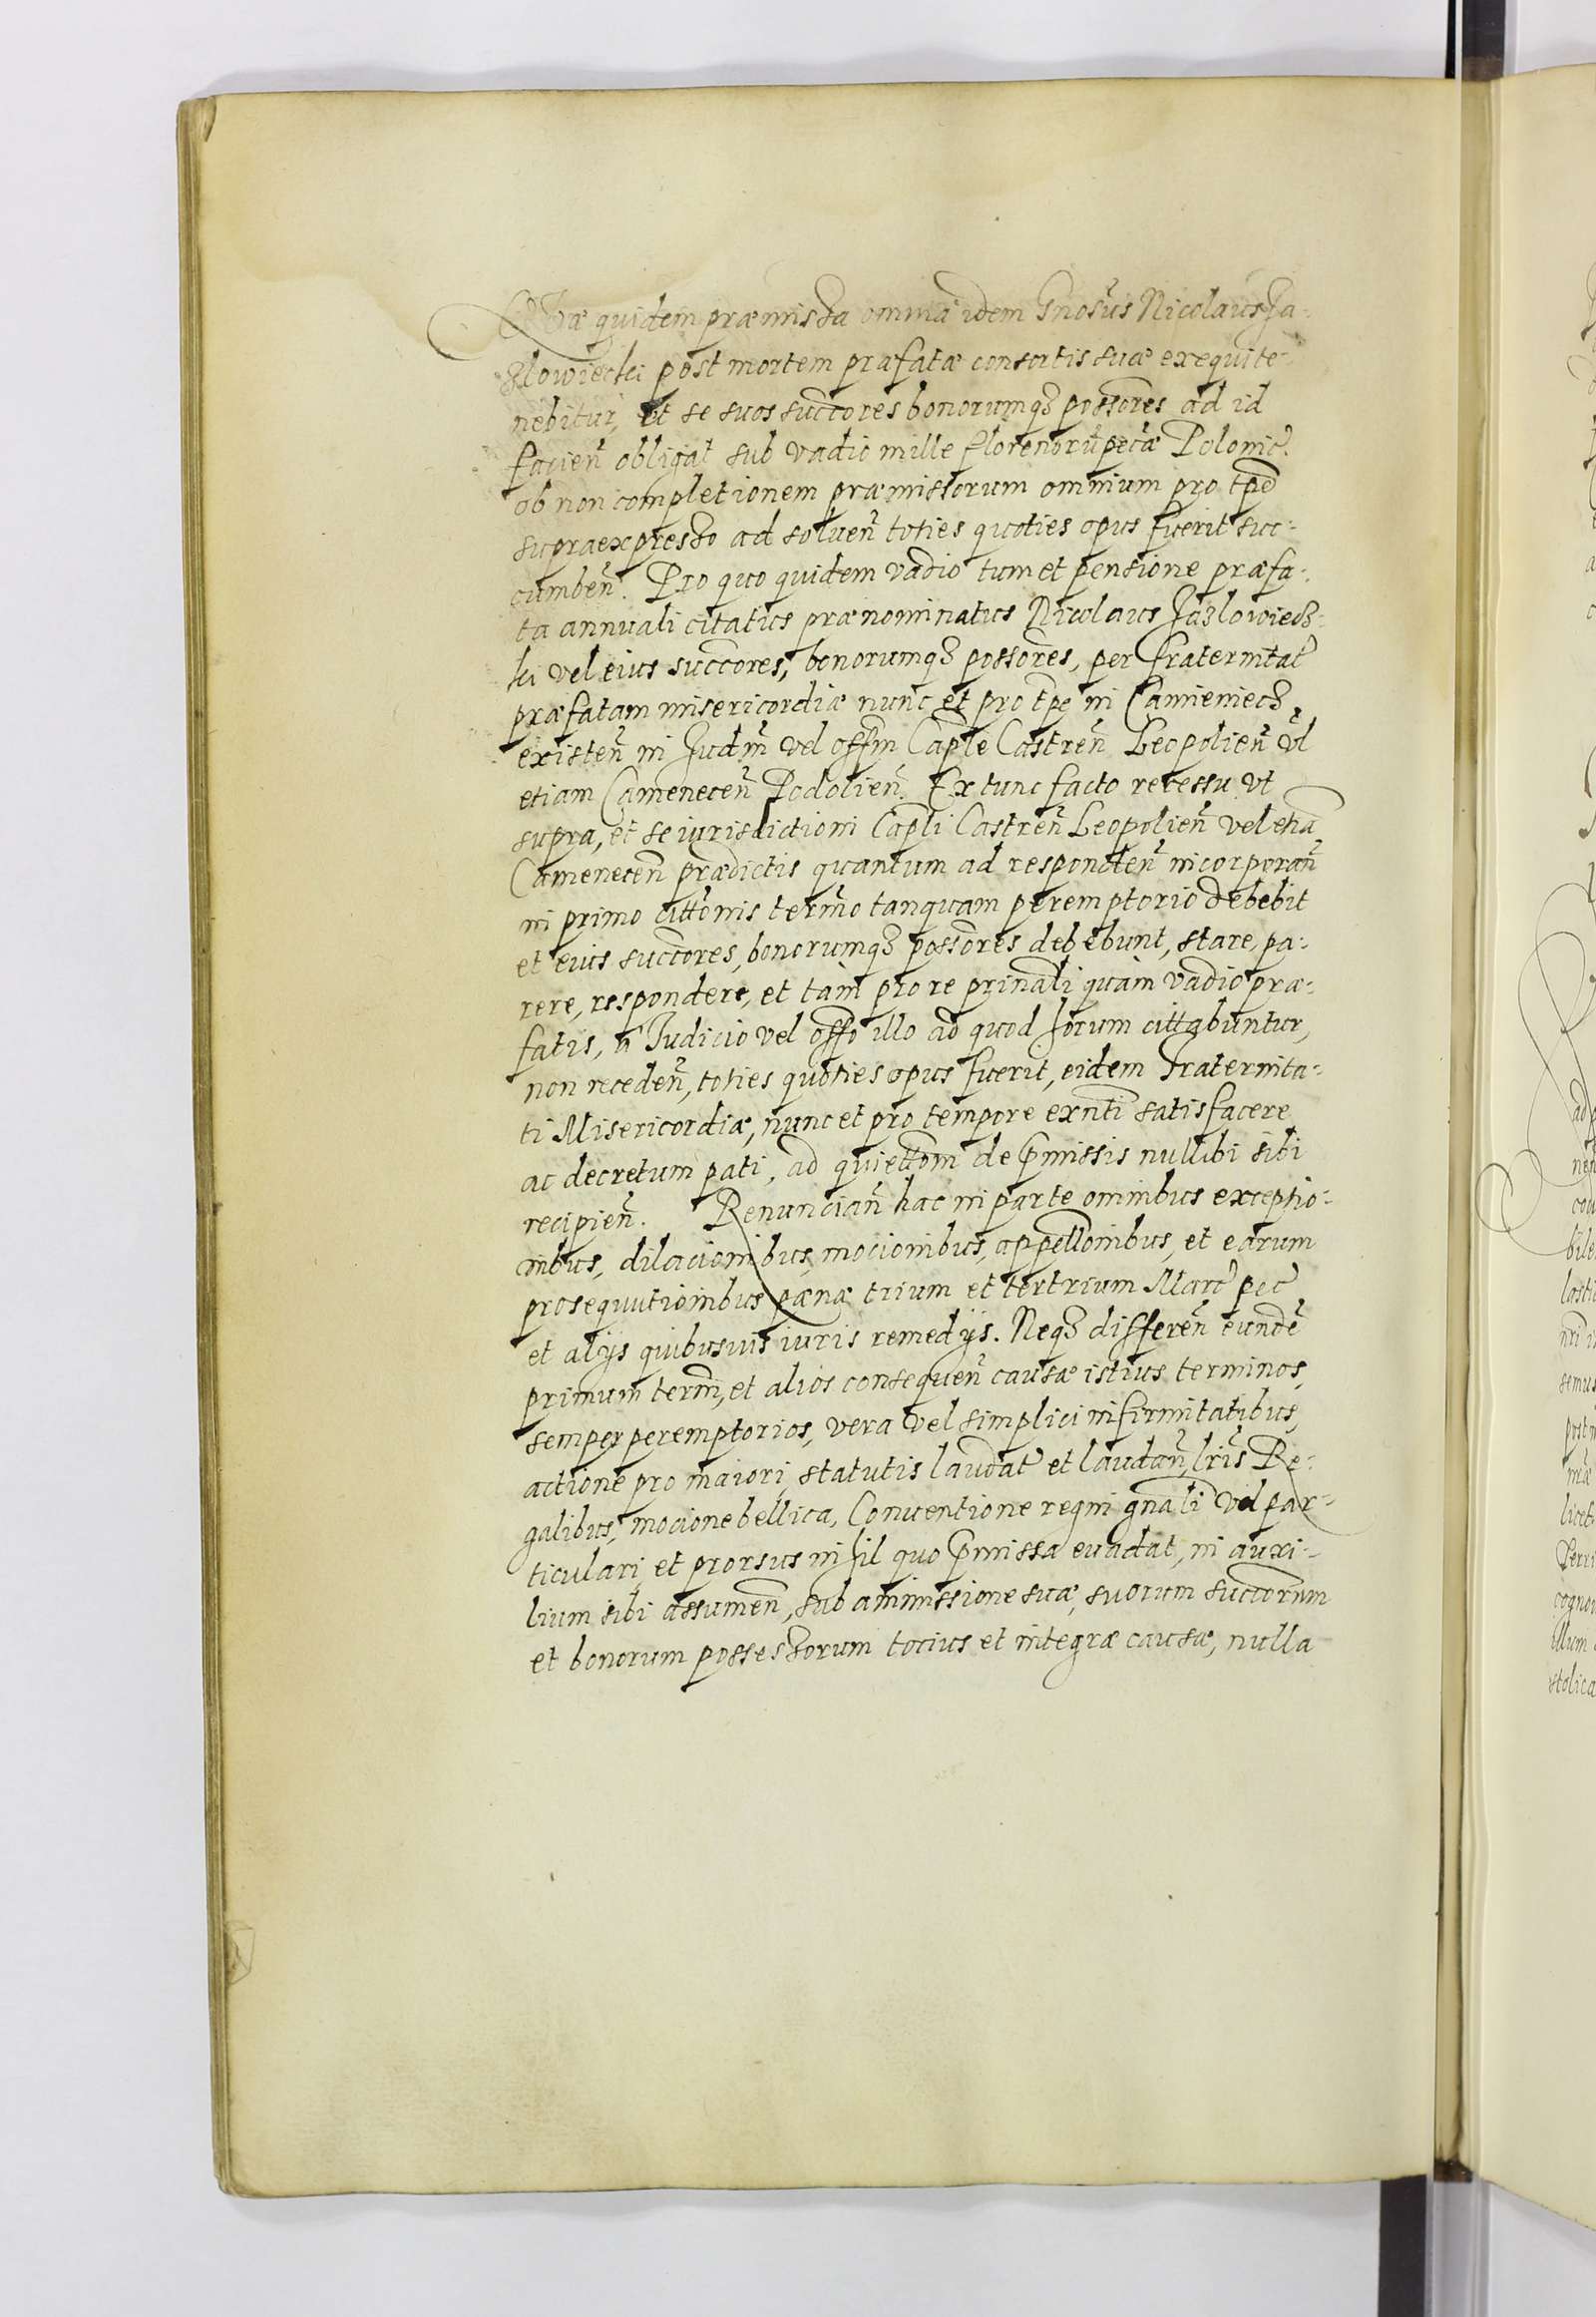 Quæ quidem præmissa omnia idem Gnosus Nicolaus Ja-
zlowiecki post mortem præfatæ consortis suæ exequi te-
nebitur, et se suos succores bonorumqz possores ad id
facien obligat sub vadio mille florenorū pecæ Polonic.
ob non completionem præmissorum omnium pro tpe
supraexpresso ad soluen toties quoties opus fuerit suc-
cumben. Pro quo quidem vadio tum et pensione præfa-
ta annuali citatus prænominatus Nicolaus Jazlowiecz-
ki vel eius succores, bonorumqz possores, per Fraternitat
præfatam misericordiæ nunc et pro tpe in Camieniecz
existen in Judm vel offm Caple Castren Leopolien vl
etiam Camenecen Podolien. Ex tunc facto recessu vt
supra, et se iurisdictioni Capli Castren Leopolien vel etiā
Camenecen prædictis quantum ad responden incorporan
in primo cittonis termo tanquam peremptorio debebit
et eius succores, bonorumqz possores debebunt, stare, pa-
rere, respondere, et tàm pro re prinali quàm vadio præ-
fatis, à Judicio vel offo illo ad quod horum cittabuntur,
non receden, toties quoties opus fuerit, eidem Fraternita-
ti Misericordiæ, nunc et pro tempore exnti satisfacere
ac decretum pati, ad quiettom de pmissis nullibi sibi
recipien. Renuncian hac in parte omnibus exceptio-
nibus, dilacionibus, mocionibus, appellonibus, et earum
prosequutionibus pænæ trium et tertrium Marc pec
et alijs quibusuis iuris remedijs. Neqz differen eundē
primum term, et alios consequen causæ istius terminos,
semper peremptorios, vera vel simplici infirmitatibus,
actione pro maiori, statutis laudat et laudan, lris Re-
galibus, mocione bellica, Conuentione regni gnali vel par-
ticulari, et prorsus nihil quo pmissa euadat, in auxi-
lium sibi assumen, sub ammissione suæ, suorum succorum
et bonorum possessorum tocius et integræ causæ, nulla